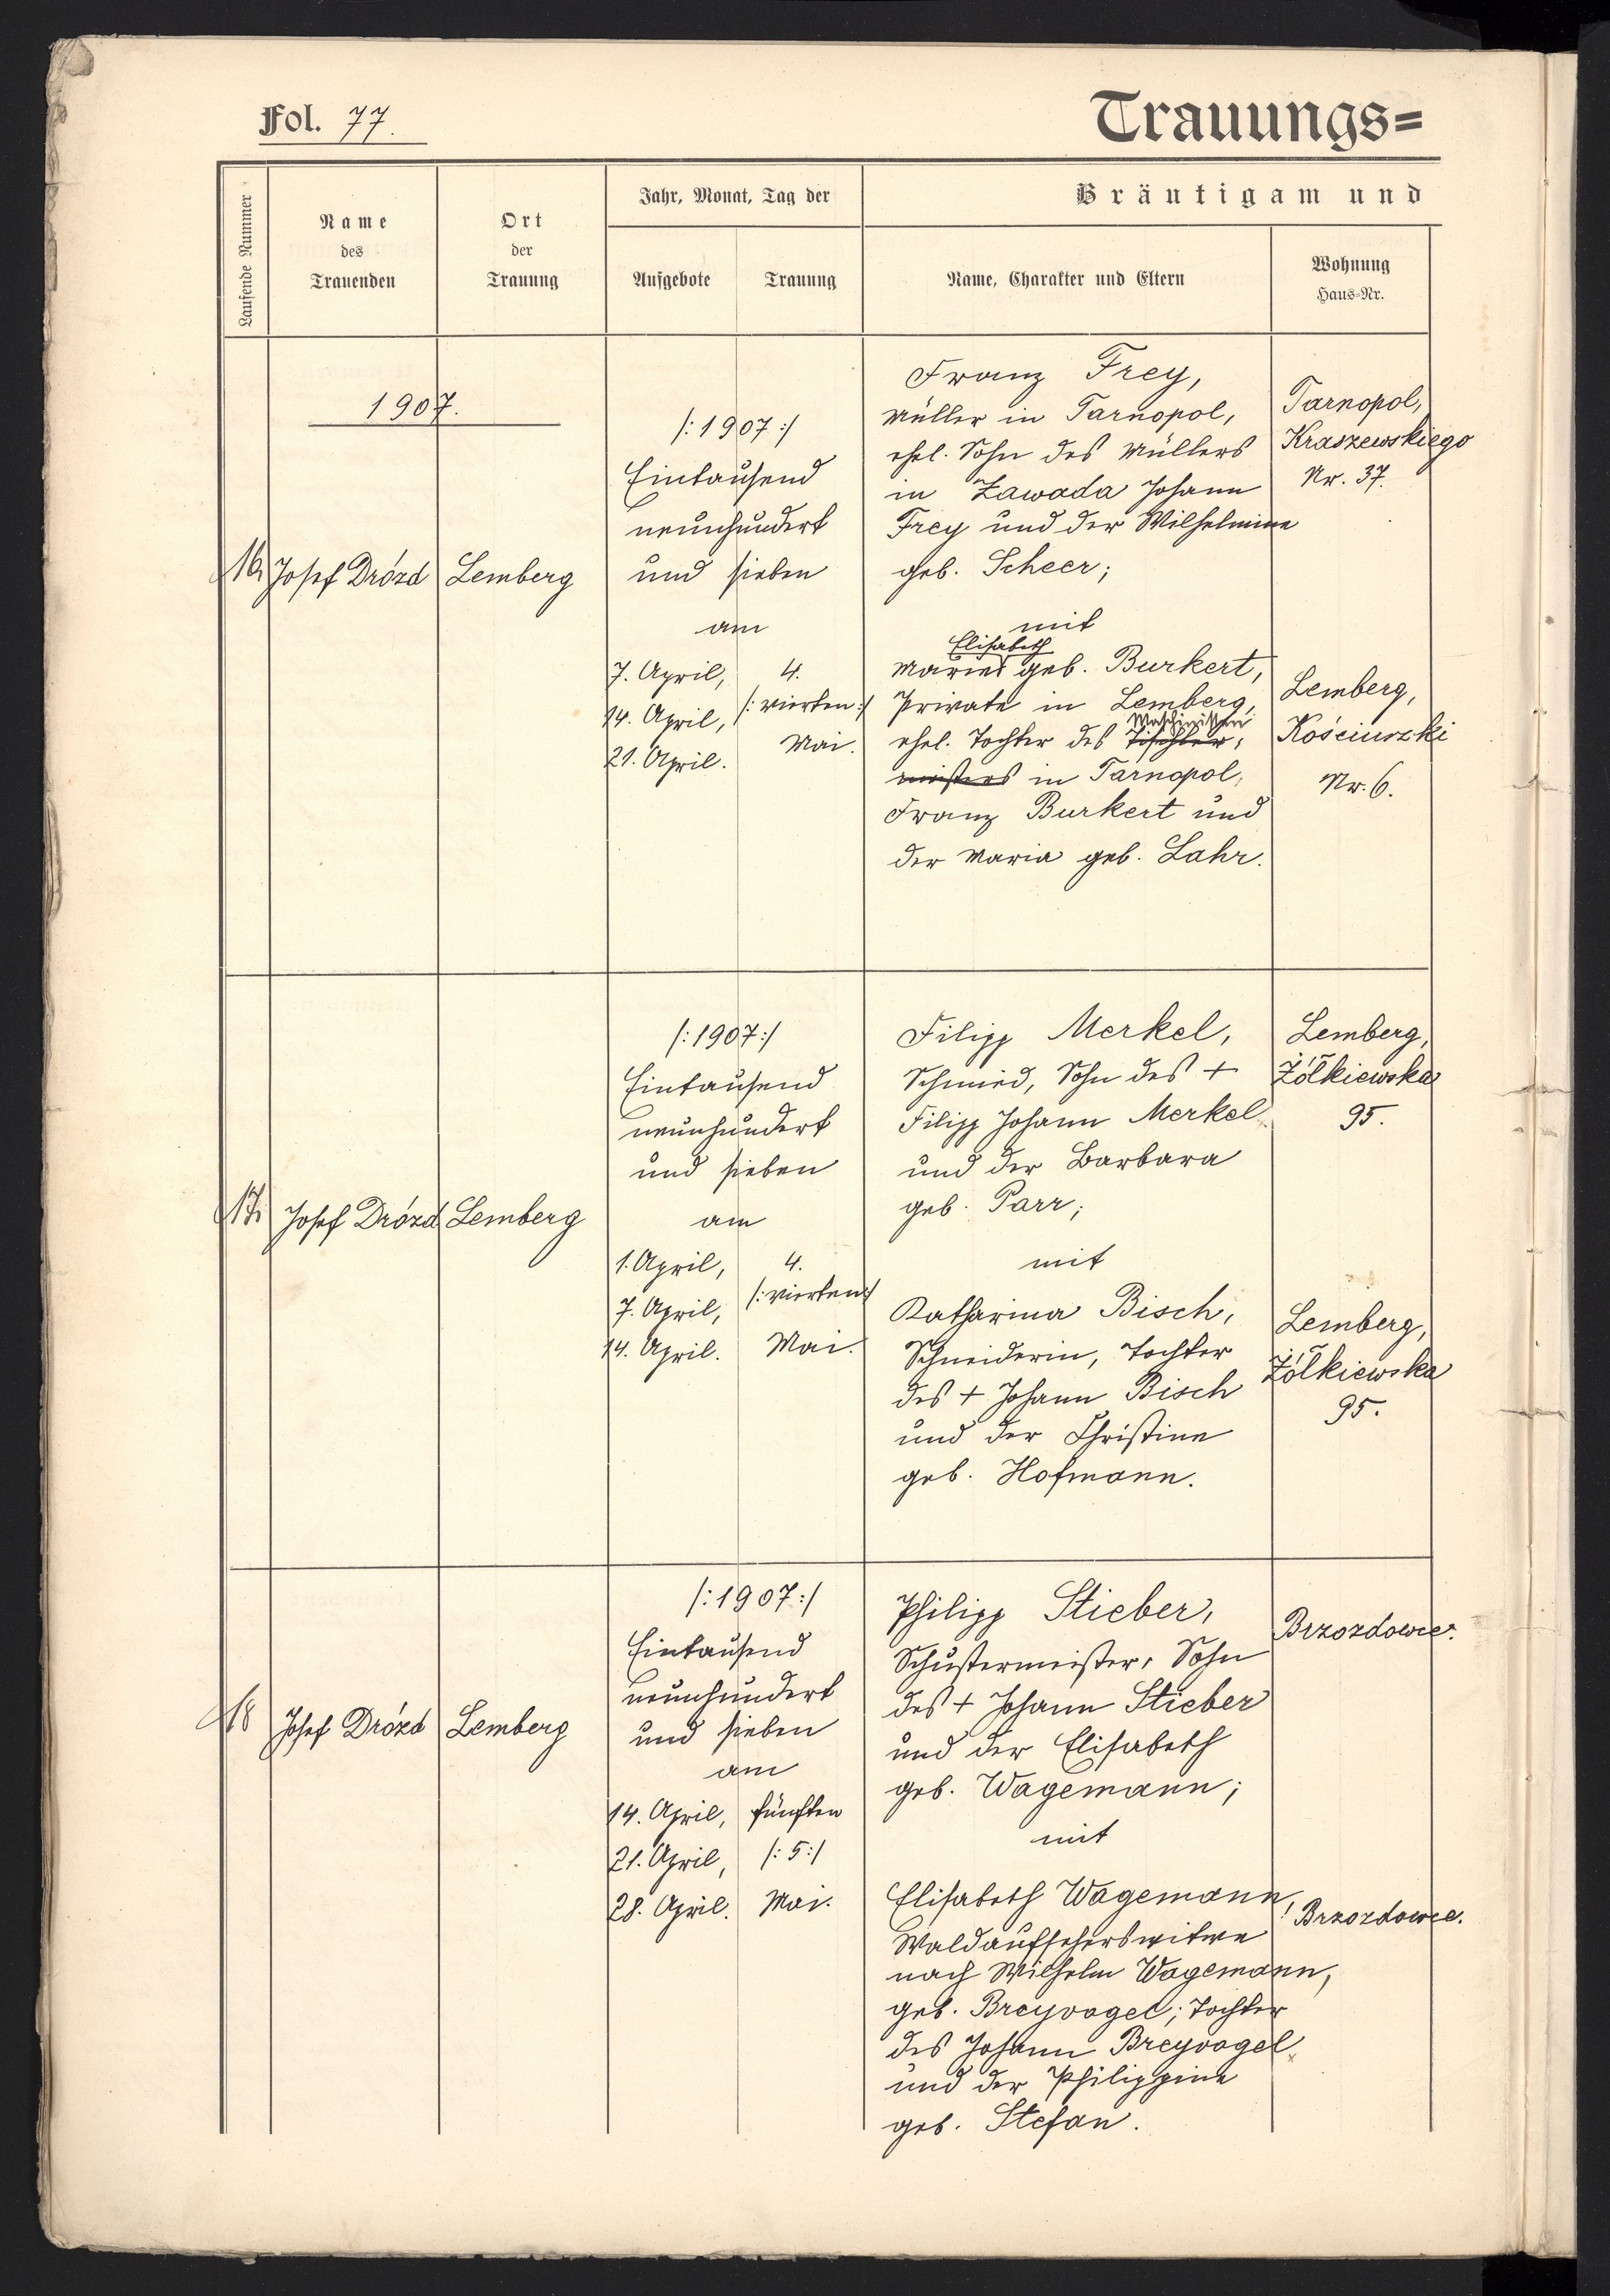 Fol. 77.
Trauungs=
Laufende Nummer
Name
des
Trauenden
Ort
der
Trauung
Jahr, Monat, Tag der
Aufgebote
Trauung
Bräutigam und
Name, Charakter und Eltern
Wohnung
Haus=Nr.
1907.
16
Josef Drózd
Lemberg
/:1907:/
Eintausend
neunhundert
und sieben
am
7. April,
14. April,
21. April.
4.
/:vierten:/
Mai.
Franz Frey,
Müller in Tarnopol,
ehel. Sohn des Müllers
in Zawada Johann
Frey und der Wilhelmine
geb. Scheer;
mit
Elisabeth
Marie geb. Burkert,
Private in Lemberg,
Maschinisten
ehel. Tochter des Tischler=
meisters in Tarnopol,
Franz Burkert und
der Maria geb. Lahr.
Tarnopol,
Kraszewskiego
Nr. 37.
Lemberg,
Kościuszki
Nr. 6.
17
Josef Drózd
Lemberg
/:1907:/
Eintausend
neunhundert
und sieben
am
1. April,
7. April,
14. April.
4.
/:vierten:/
Mai.
Filipp Merkel,
Schmied, Sohn des +
Filipp Johann Merkel
und der Barbara
geb. Parr;
mit
Katharina Bisch,
Schneiderin, Tochter
des + Johann Bisch
und der Christine
geb. Hofmann.
Lemberg,
Żółkiewska
95.
Lemberg,
Żółkiewska
95.
18
Josef Drózd
Lemberg
/:1907:/
Eintausend
neunhundert
und sieben
am
14. April,
21. April,
28. April.
fünften
/:5:/
Mai.
Philipp Stieber,
Schustermeister, Sohn
des + Johann Stieber
und der Elisabeth
geb. Wagemann;
mit
Elisabeth Wagemann,
Waldaufseherswitwe
nach Wilhelm Wagemann,
geb. Breyvogel; Tochter
des Johann Breyvogel
und der Philippine
geb. Stefan.
Brzozdowce.
Brzozdowce.